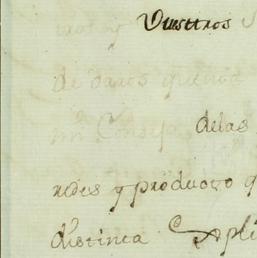 Vuestros
de daros quenta
mi Consejo delas
redes y producto q
distinca Apli